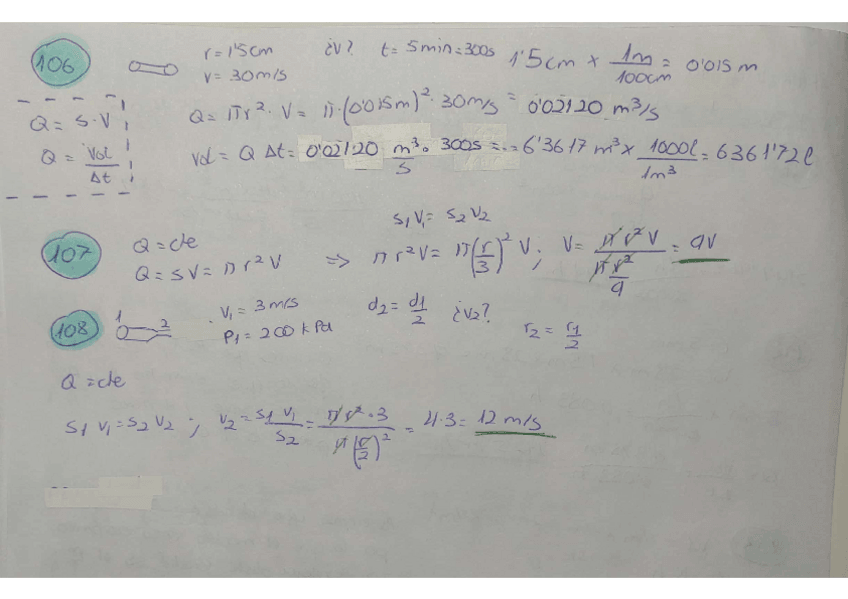 106 r = 1'5 cm ¿v? t = 5 min = 300s 1'5 cm × 1m/100cm = 0'015 m
v = 30 m/s
Q = S·V Q = πr²·V = π·(0'015m)²·30 m/s = 0'02120 m³/s
Q = Vol/Δt Vol = Q Δt = 0'02120 m³/s · 300s = 6'3617 m³ × 1000l/1m³ = 6361'72 l
S₁V₁ = S₂V₂
107 Q = cte
Q = SV = πr²V ⇒ πr²V = π(r/3)² V ; V = πr²V/(πr²/9) = 9V
108 1 2 V₁ = 3 m/s d₂ = d₁/2 ¿V₂?
P₁ = 200 kPa r₂ = r₁/2
Q = cte
S₁ V₁ = S₂ V₂ ; V₂ = S₁ V₁/S₂ = πr²·3/π(r/2)² = 4·3 = 12 m/s